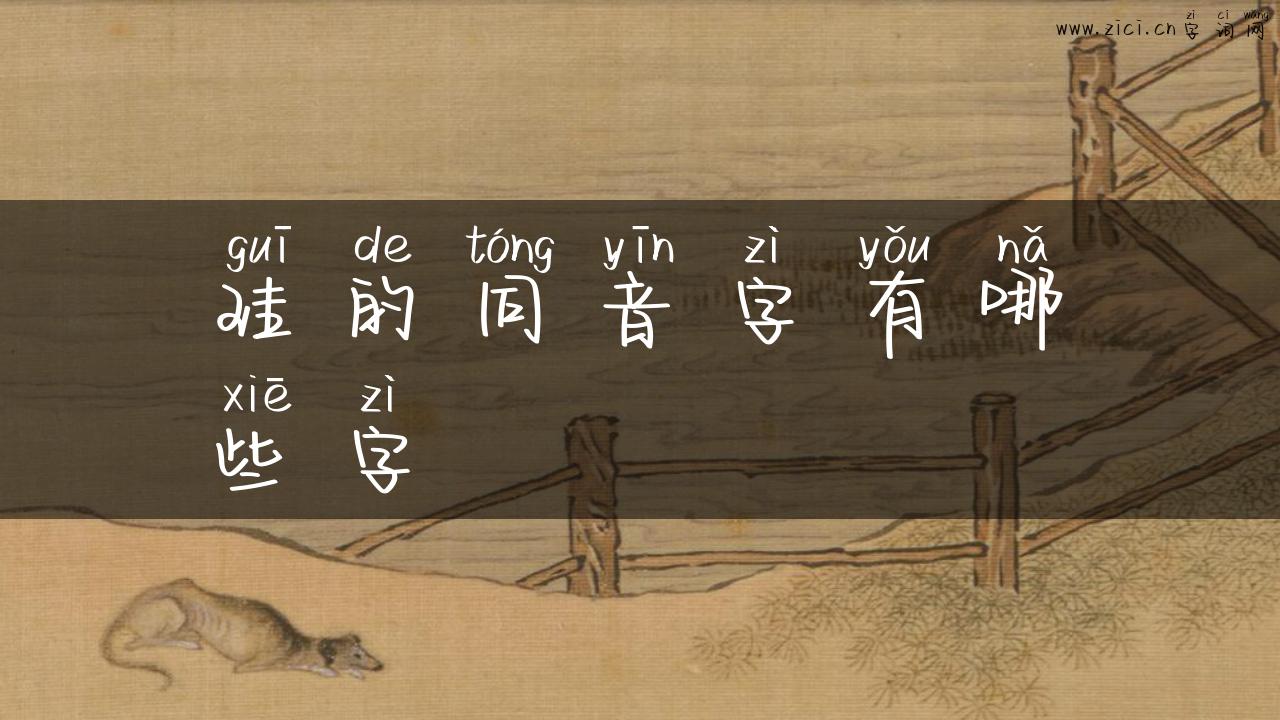 zì cí wǎng
www.zici.cn 字词网
guī de tóng yīn zì yǒu nǎ
硅的同音字有哪
xiē zì
些字